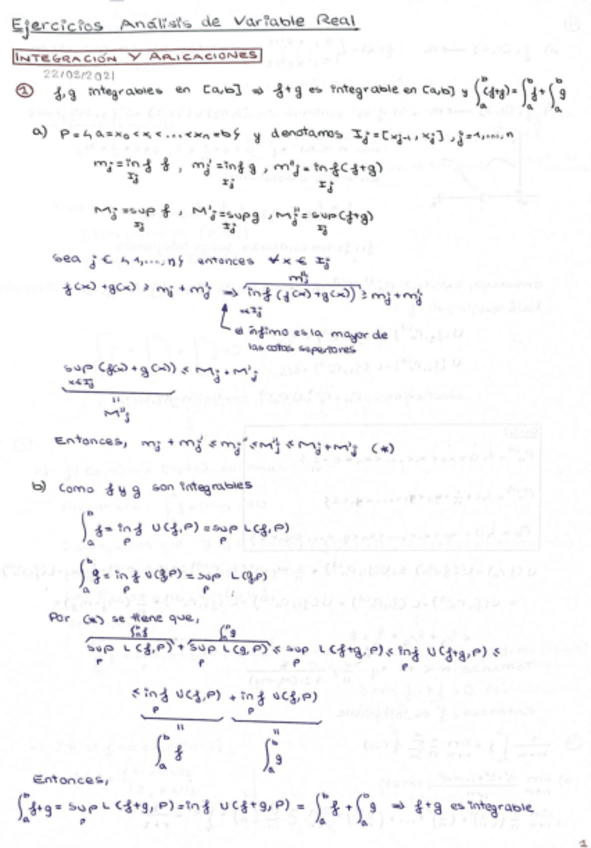 Ejercicios Análisis de Variable Real
INTEGRACIÓN Y APLICACIONES
22/02/2021
① f,g integrables en [a,b] ⇒ f+g es integrable en [a,b] y ∫_a^b (f+g) = ∫_a^b f + ∫_a^b g
a) P={a=x₀<x<...<xₙ=b} y denotamos I_j=[x_{j-1}, x_j], j=1,...,n
m_j = inf_{I_j} f , m'_j = inf_{I_j} g , m''_j = inf_{I_j} (f+g)
M_j = sup_{I_j} f , M'_j = sup_{I_j} g , M''_j = sup_{I_j} (f+g)
Sea j ∈ {1,...,n} entonces ∀x ∈ I_j
m''_j
f(x) + g(x) ≥ m_j + m'_j ⇒ inf_{x∈I_j} (f(x)+g(x)) ≥ m_j + m'_j
el ínfimo es la mayor de
las cotas superiores
sup_{x∈I_j} (f(x)+g(x)) ≤ M_j + M'_j
"
M''_j
Entonces, m_j + m'_j ≤ m''_j ≤ M''_j ≤ M_j + M'_j (*)
b) Como f y g son integrables
∫_a^b f = inf_P U(f,P) = sup_P L(f,P)
∫_a^b g = inf_P U(g,P) = sup_P L(g,P)
Por (*) se tiene que,
∫_a^b f ∫_a^b g
sup_P L(f,P) + sup_P L(g,P) ≤ sup_P L(f+g,P) ≤ inf_P U(f+g,P) ≤
≤ inf_P U(f,P) + inf_P U(g,P)
" "
∫_a^b f ∫_a^b g
Entonces,
∫_a^b f+g = sup_P L(f+g,P) = inf_P U(f+g,P) = ∫_a^b f + ∫_a^b g ⇒ f+g es integrable
1